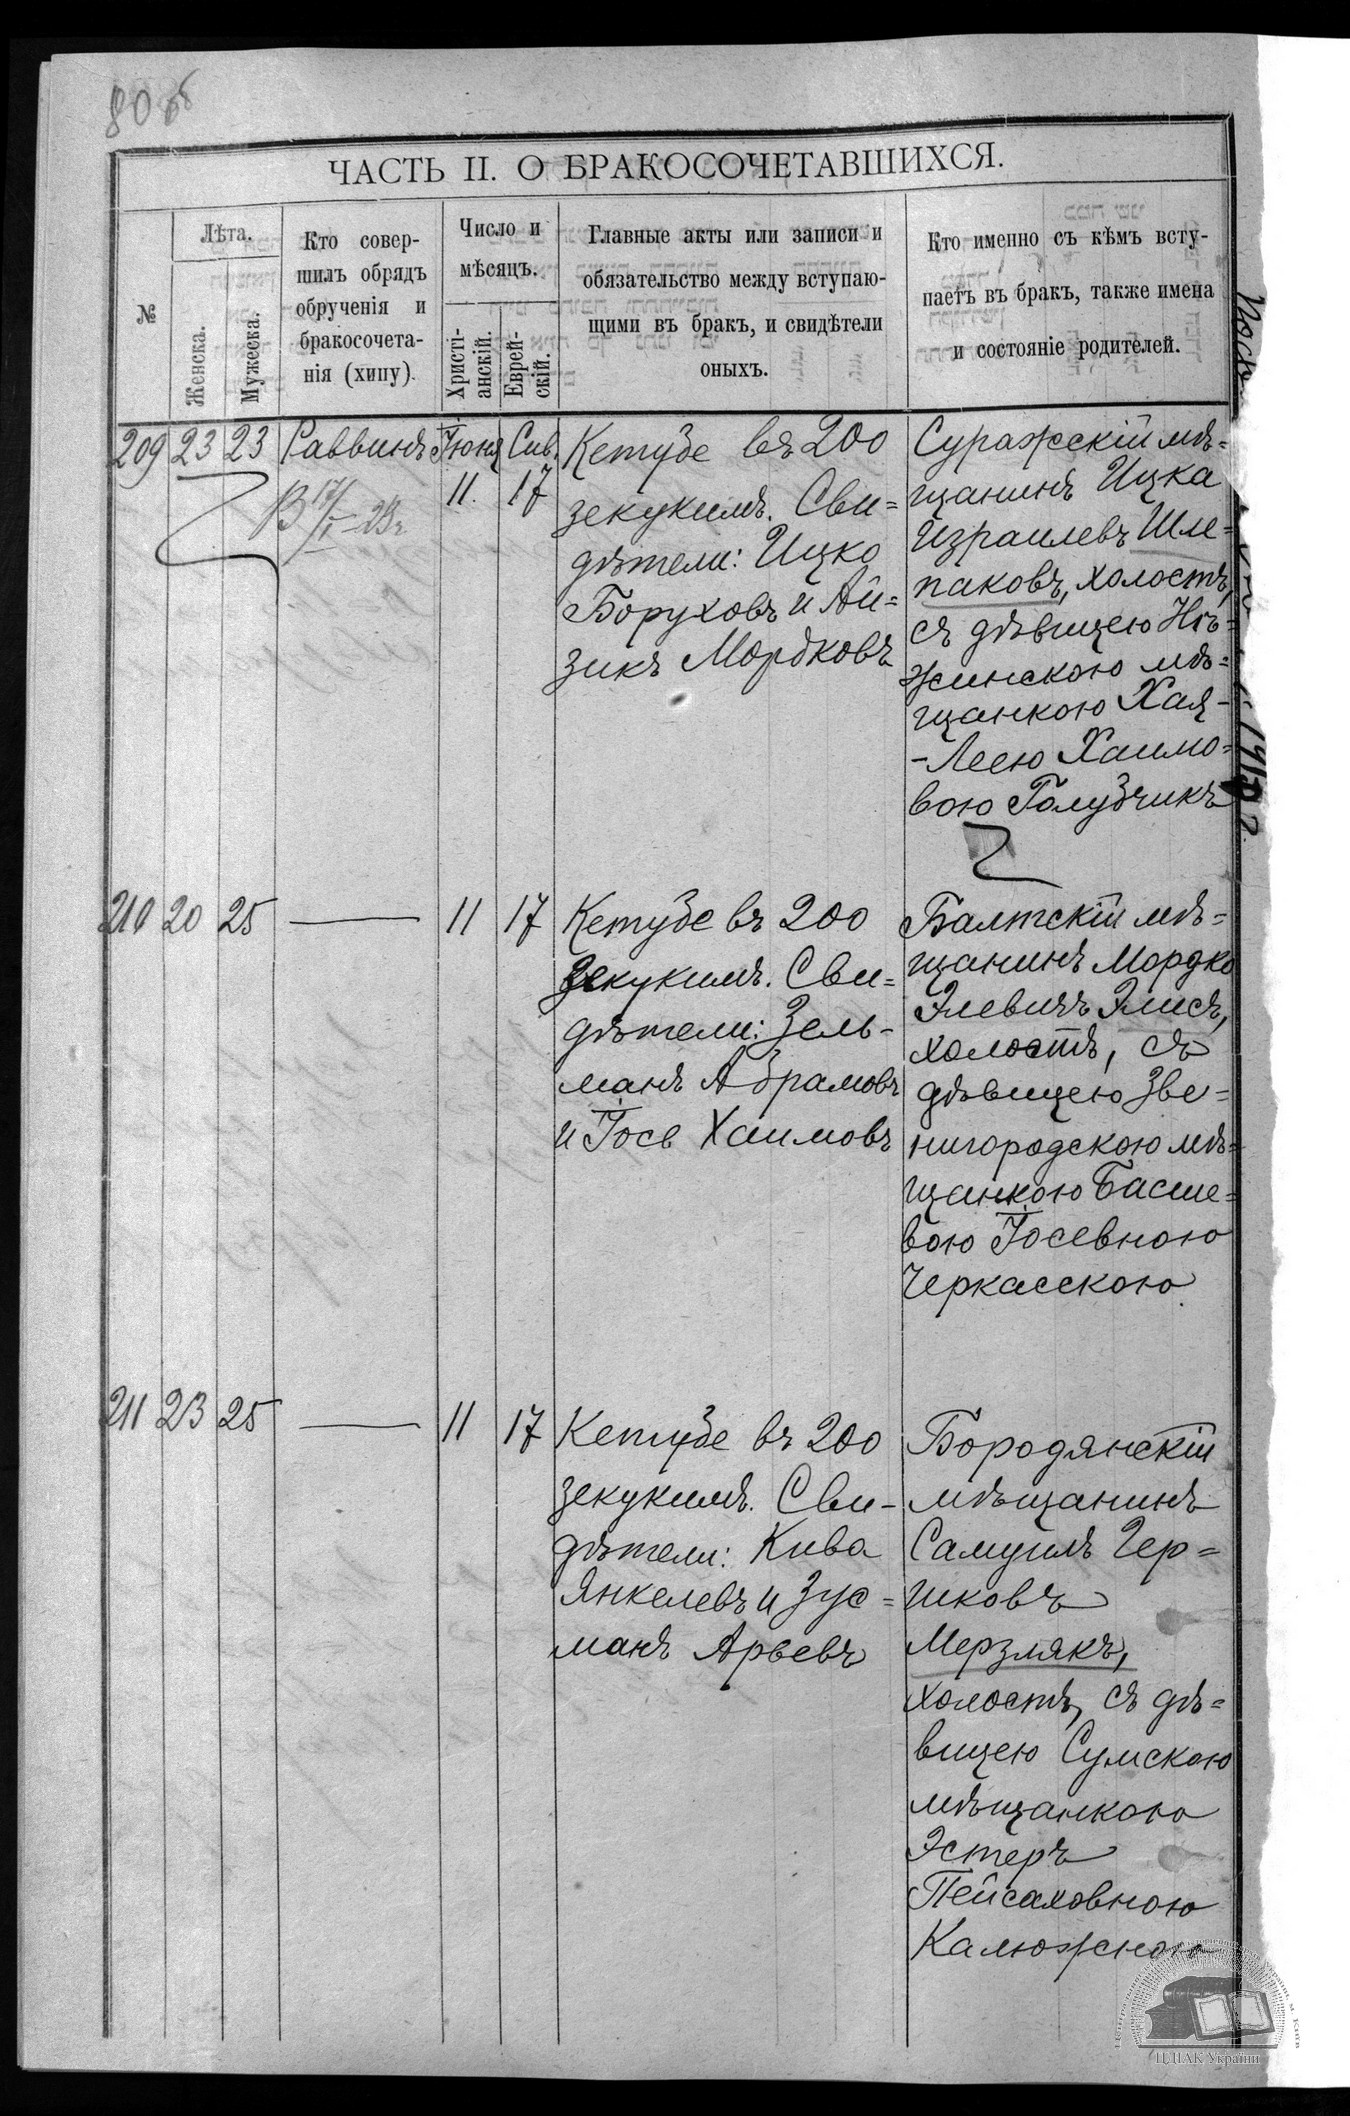 80 об
ЧАСТЬ II. О БРАКОСОЧЕТАВШИХСЯ.
№
Лѣта.
Женска.
Мужеска.
Кто совер-
шилъ обрядъ
обрученія и
бракосочета-
нія (хипу).
Число и
мѣсяцъ.
Христі-
анскій.
Еврей-
скій.
Главные акты или записи и
обязательство между вступаю-
щими въ бракъ, и свидѣтели
оныхъ.
Кто именно съ кѣмъ всту-
паетъ въ бракъ, также имена
и состояніе родителей.
209 23 23 Раввинъ Іюня 11. Сив. 17
В 17/I-23г
Кетубе въ 200
зекукимъ. Сви=
дѣтели: Ицко
Боруховъ и Ай=
зикъ Мордковъ
Суражскій мѣ=
щанинъ Ицка
Израилевъ Шле=
паковъ, холостъ,
съ дѣвицею Нѣ=
жинскою мѣ=
щанкою Хая-
-Леею Хаимо=
вою Голубчикъ
210 20 25 — 11 17
Кетубе въ 200
зекукимъ. Сви=
дѣтели: Зель-
манъ Абрамовъ
и Іось Хаимовъ
Балтскій мѣ=
щанинъ Мордко
Элевичъ Элисъ,
холостъ, съ
дѣвицею Зве=
нигородскою мѣ=
щанкою Басше=
вою Іосевною
Черкасскою
211 23 25 — 11 17
Кетубе въ 200
зекукимъ. Сви-
дѣтели: Кива
Янкелевъ и Зус=
манъ Арьевъ
Бородянскій
мѣщанинъ
Самуилъ Гер=
шковъ
Мерзлякъ,
холостъ, съ дѣ=
вицею Сумскою
мѣщанкою
Эстеръ
Пейсаховною
Калюжною
ЦДІАК України